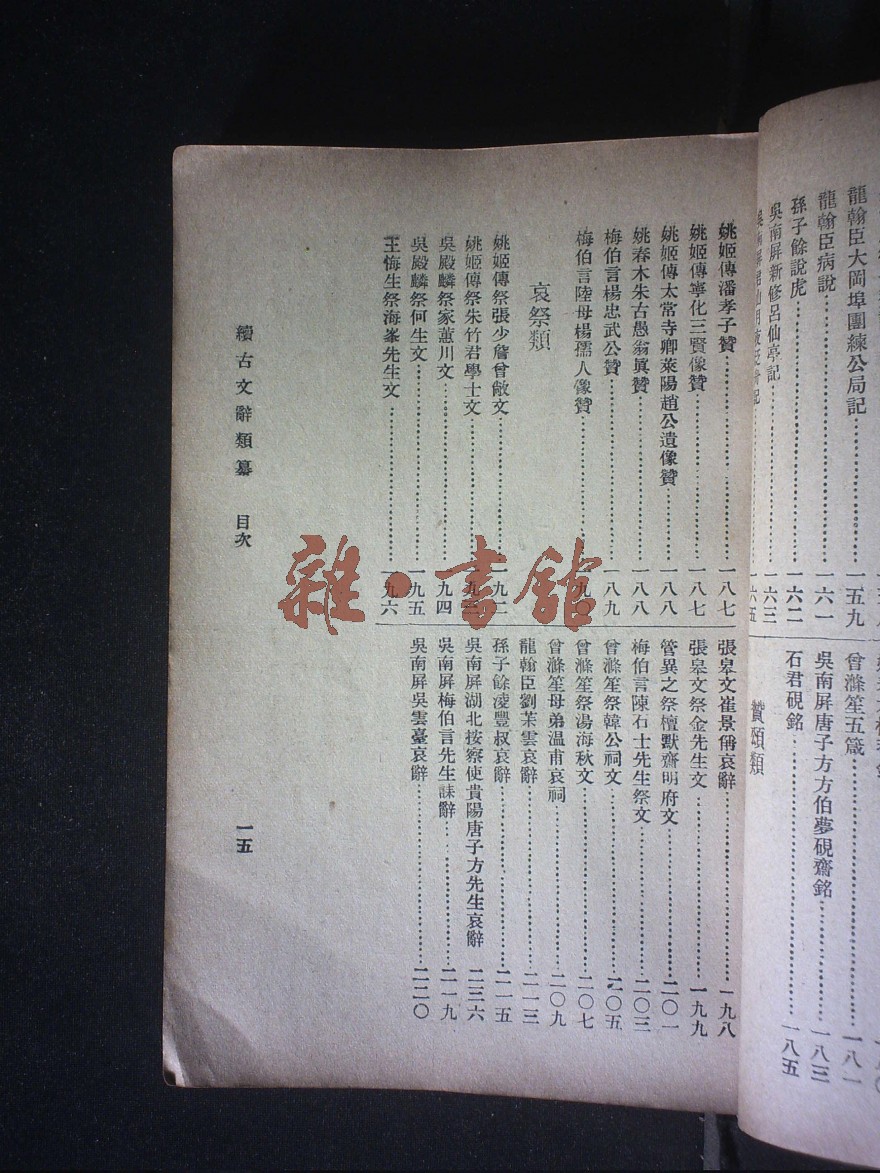 龍翰臣大岡埠團練公局記……一五九
龍翰臣病說……一六一
孫子餘說虎……一六二
吳南屏新修呂仙亭記……一六三
曾滌笙五箴……一八一
吳南屏唐子方方伯夢硯齋銘……一八三
石君硯銘……一八五
贊頌類
姚姬傳潘孝子贊……一八七
姚姬傳寧化三賢像贊……一八七
姚姬傳太常寺卿萊陽趙公遺像贊……一八八
姚春木朱古愚翁眞贊……一八八
梅伯言楊忠武公贊……一八九
梅伯言陸母楊孺人像贊……一九〇
哀祭類
姚姬傳祭張少詹曾敞文……一九二
姚姬傳祭朱竹君學士文……一九三
吳殿麟祭家蕙川文……一九四
吳殿麟祭何生文……一九五
王悔生祭海峯先生文……一九六
張皋文崔景偁哀辭……一九八
張皋文祭金先生文……一九九
管異之祭檀默齋明府文……二〇一
梅伯言陳石士先生祭文……二〇三
曾滌笙祭韓公祠文……二〇五
曾滌笙祭湯海秋文……二〇七
曾滌笙母弟温甫哀祠……二〇九
龍翰臣劉茮雲哀辭……二一三
孫子餘凌豐叔哀辭……二一五
吳南屏湖北按察使貴陽唐子方先生哀辭……二三六
吳南屏梅伯言先生誄辭……二一九
吳南屏吳雲臺哀辭……二二〇
續古文辭類纂 目次
一五
雜·書館